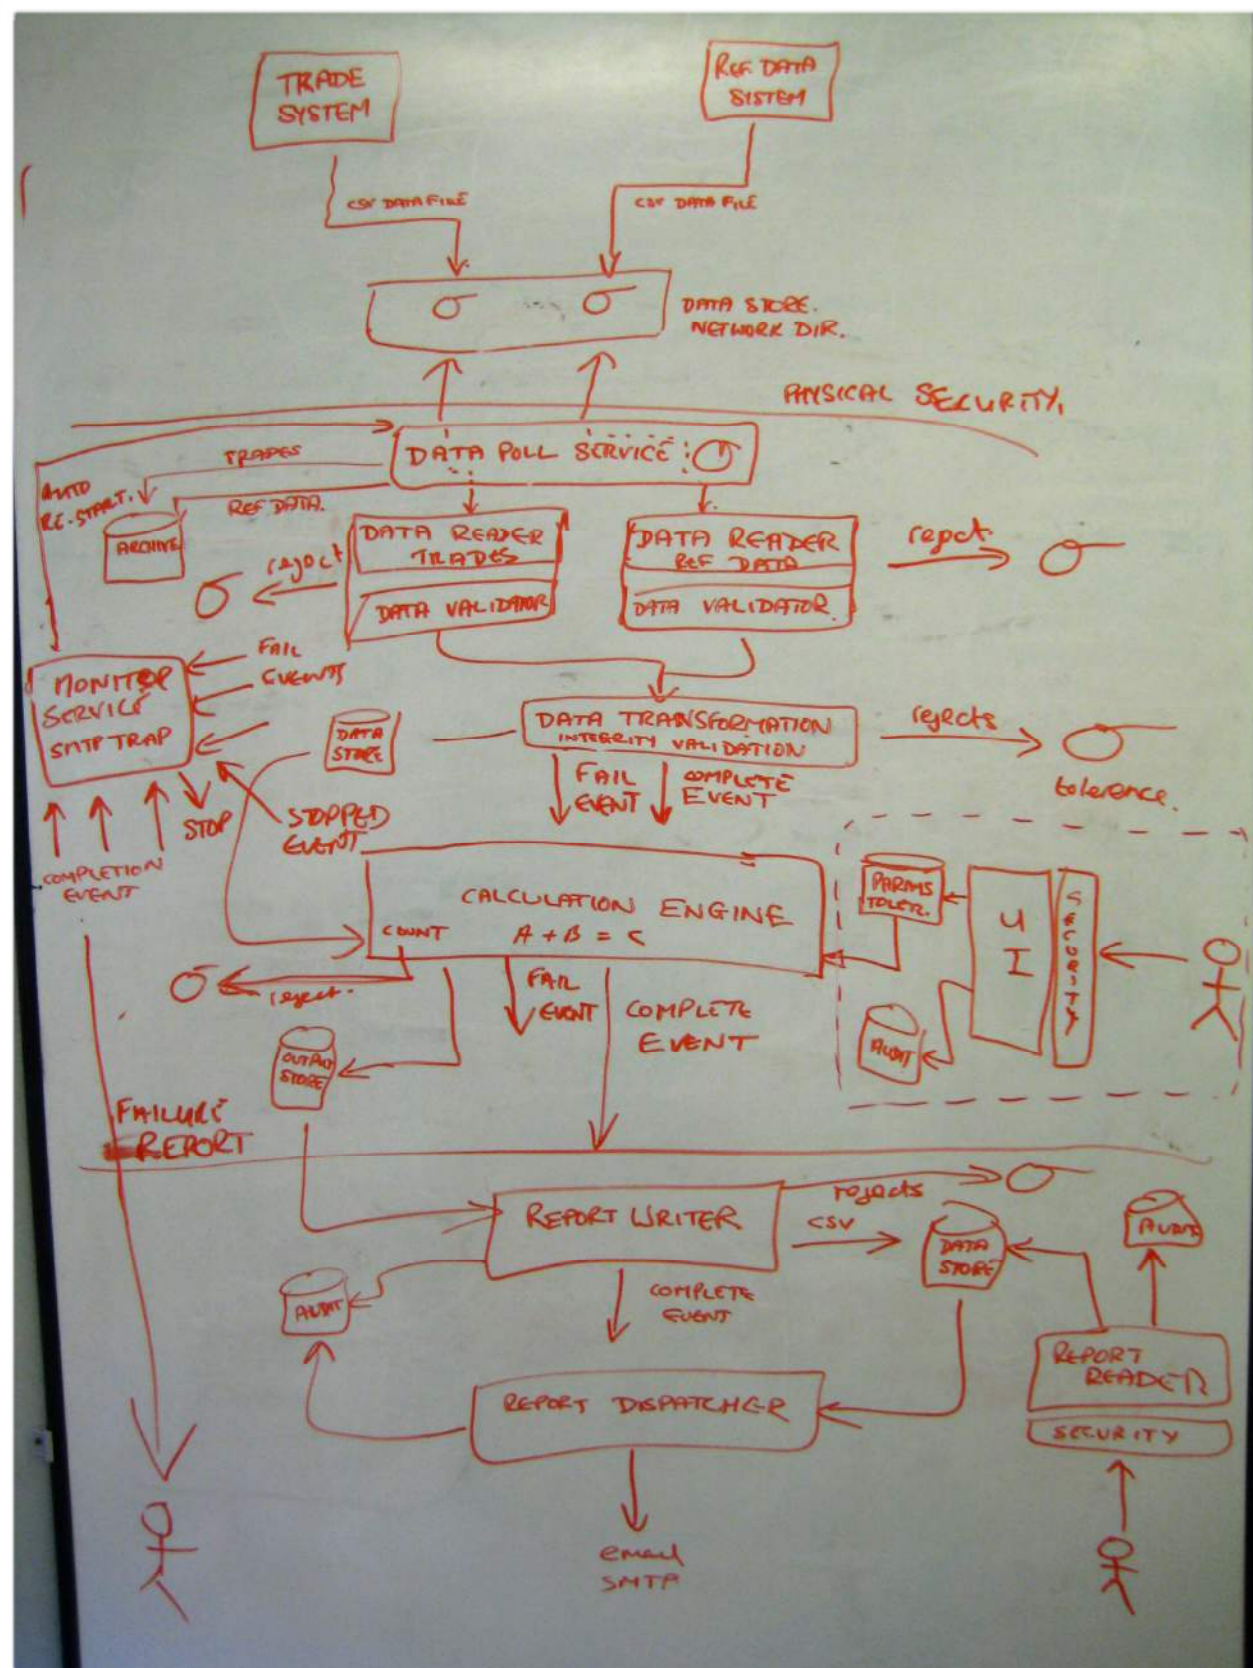 TRADE
SYSTEM
REF DATA
SYSTEM
CSV DATA FILE
CSV DATA FILE
DATA STORE.
NETWORK DIR.
PHYSICAL SECURITY.
DATA POLL SERVICE
TRADES
AUTO
RE-START.
REF DATA.
ARCHIVE
DATA READER
TRADES
DATA VALIDATOR
DATA READER
REF DATA
DATA VALIDATOR
reject
reject
FAIL
EVENTS
MONITOR
SERVICE
SMTP TRAP
DATA
STORE
DATA TRANSFORMATION
INTEGRITY VALIDATION
rejects
tolerence.
FAIL
EVENT
COMPLETE
EVENT
STOP
STOPPED
EVENT
COMPLETION
EVENT
CALCULATION ENGINE
COUNT
A + B = C
PARAMS
TOLER.
UI
SECURITY
AUDIT
reject.
FAIL
EVENT
COMPLETE
EVENT
OUTPUT
STORE
FAILURE
REPORT
REPORT WRITER
rejects
CSV
DATA
STORE
AUDIT
AUDIT
COMPLETE
EVENT
REPORT
READER
SECURITY
REPORT DISPATCHER
email
SMTP